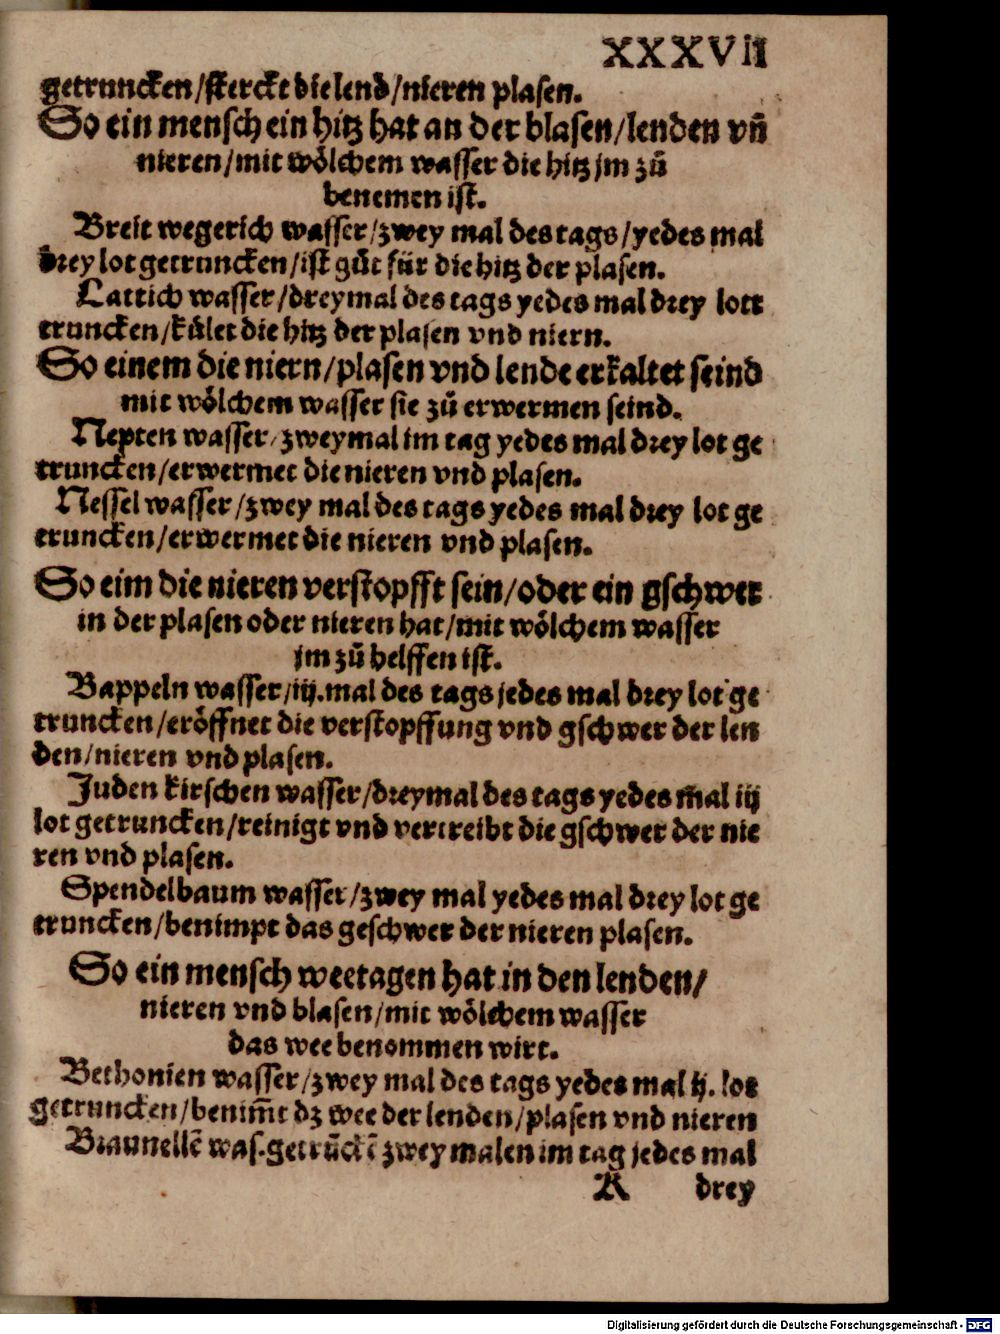 XXXVII
getruncken/sterckt die lend/nieren plasen.
So ein mensch ein hitz hat an der blasen/lenden vñ
nieren/mit wölchem wasser die hitz jm zů
benemen ist.
Breit wegerich wasser/zwey mal des tags/yedes mal
drey lot getruncken/ist gůt für die hitz der plasen.
Lattich wasser/dreymal des tags yedes mal drey lott
truncken/kület die hitz der plasen vnd niern.
So einem die niern/plasen vnd lende erkaltet seind
mit wölchem wasser sie zů erwermen seind.
Nepten wasser/zweymal im tag yedes mal drey lot ge
truncken/erwermet die nieren vnd plasen.
Nessel wasser/zwey mal des tags yedes mal drey lot ge
truncken/erwermet die nieren vnd plasen.
So eim die nieren verstopfft sein/oder ein gschwer
in der plasen oder nieren hat/mit wölchem wasser
jm zů helffen ist.
Bappeln wasser/iij.mal des tags jedes mal drey lot ge
truncken/eröffnet die verstopffung vnd gschwer der len
den/nieren vnd plasen.
Juden kirschen wasser/dreymal des tags yedes m̃al iij
lot getruncken/reinigt vnd vertreibt die gschwer der nie
ren vnd plasen.
Spendelbaum wasser/zwey mal yedes mal drey lot ge
truncken/benimpt das geschwer der nieren plasen.
So ein mensch weetagen hat in den lenden/
nieren vnd blasen/mit wölchem wasser
das wee benommen wirt.
Bethonien wasser/zwey mal des tags yedes mal ij. lot
getruncken/benim̃t dz wee der lenden/plasen vnd nieren
Braunellē was.getrūckē zwey malen im tag jedes mal
K drey
Digitalisierung gefördert durch die Deutsche Forschungsgemeinschaft - DFG